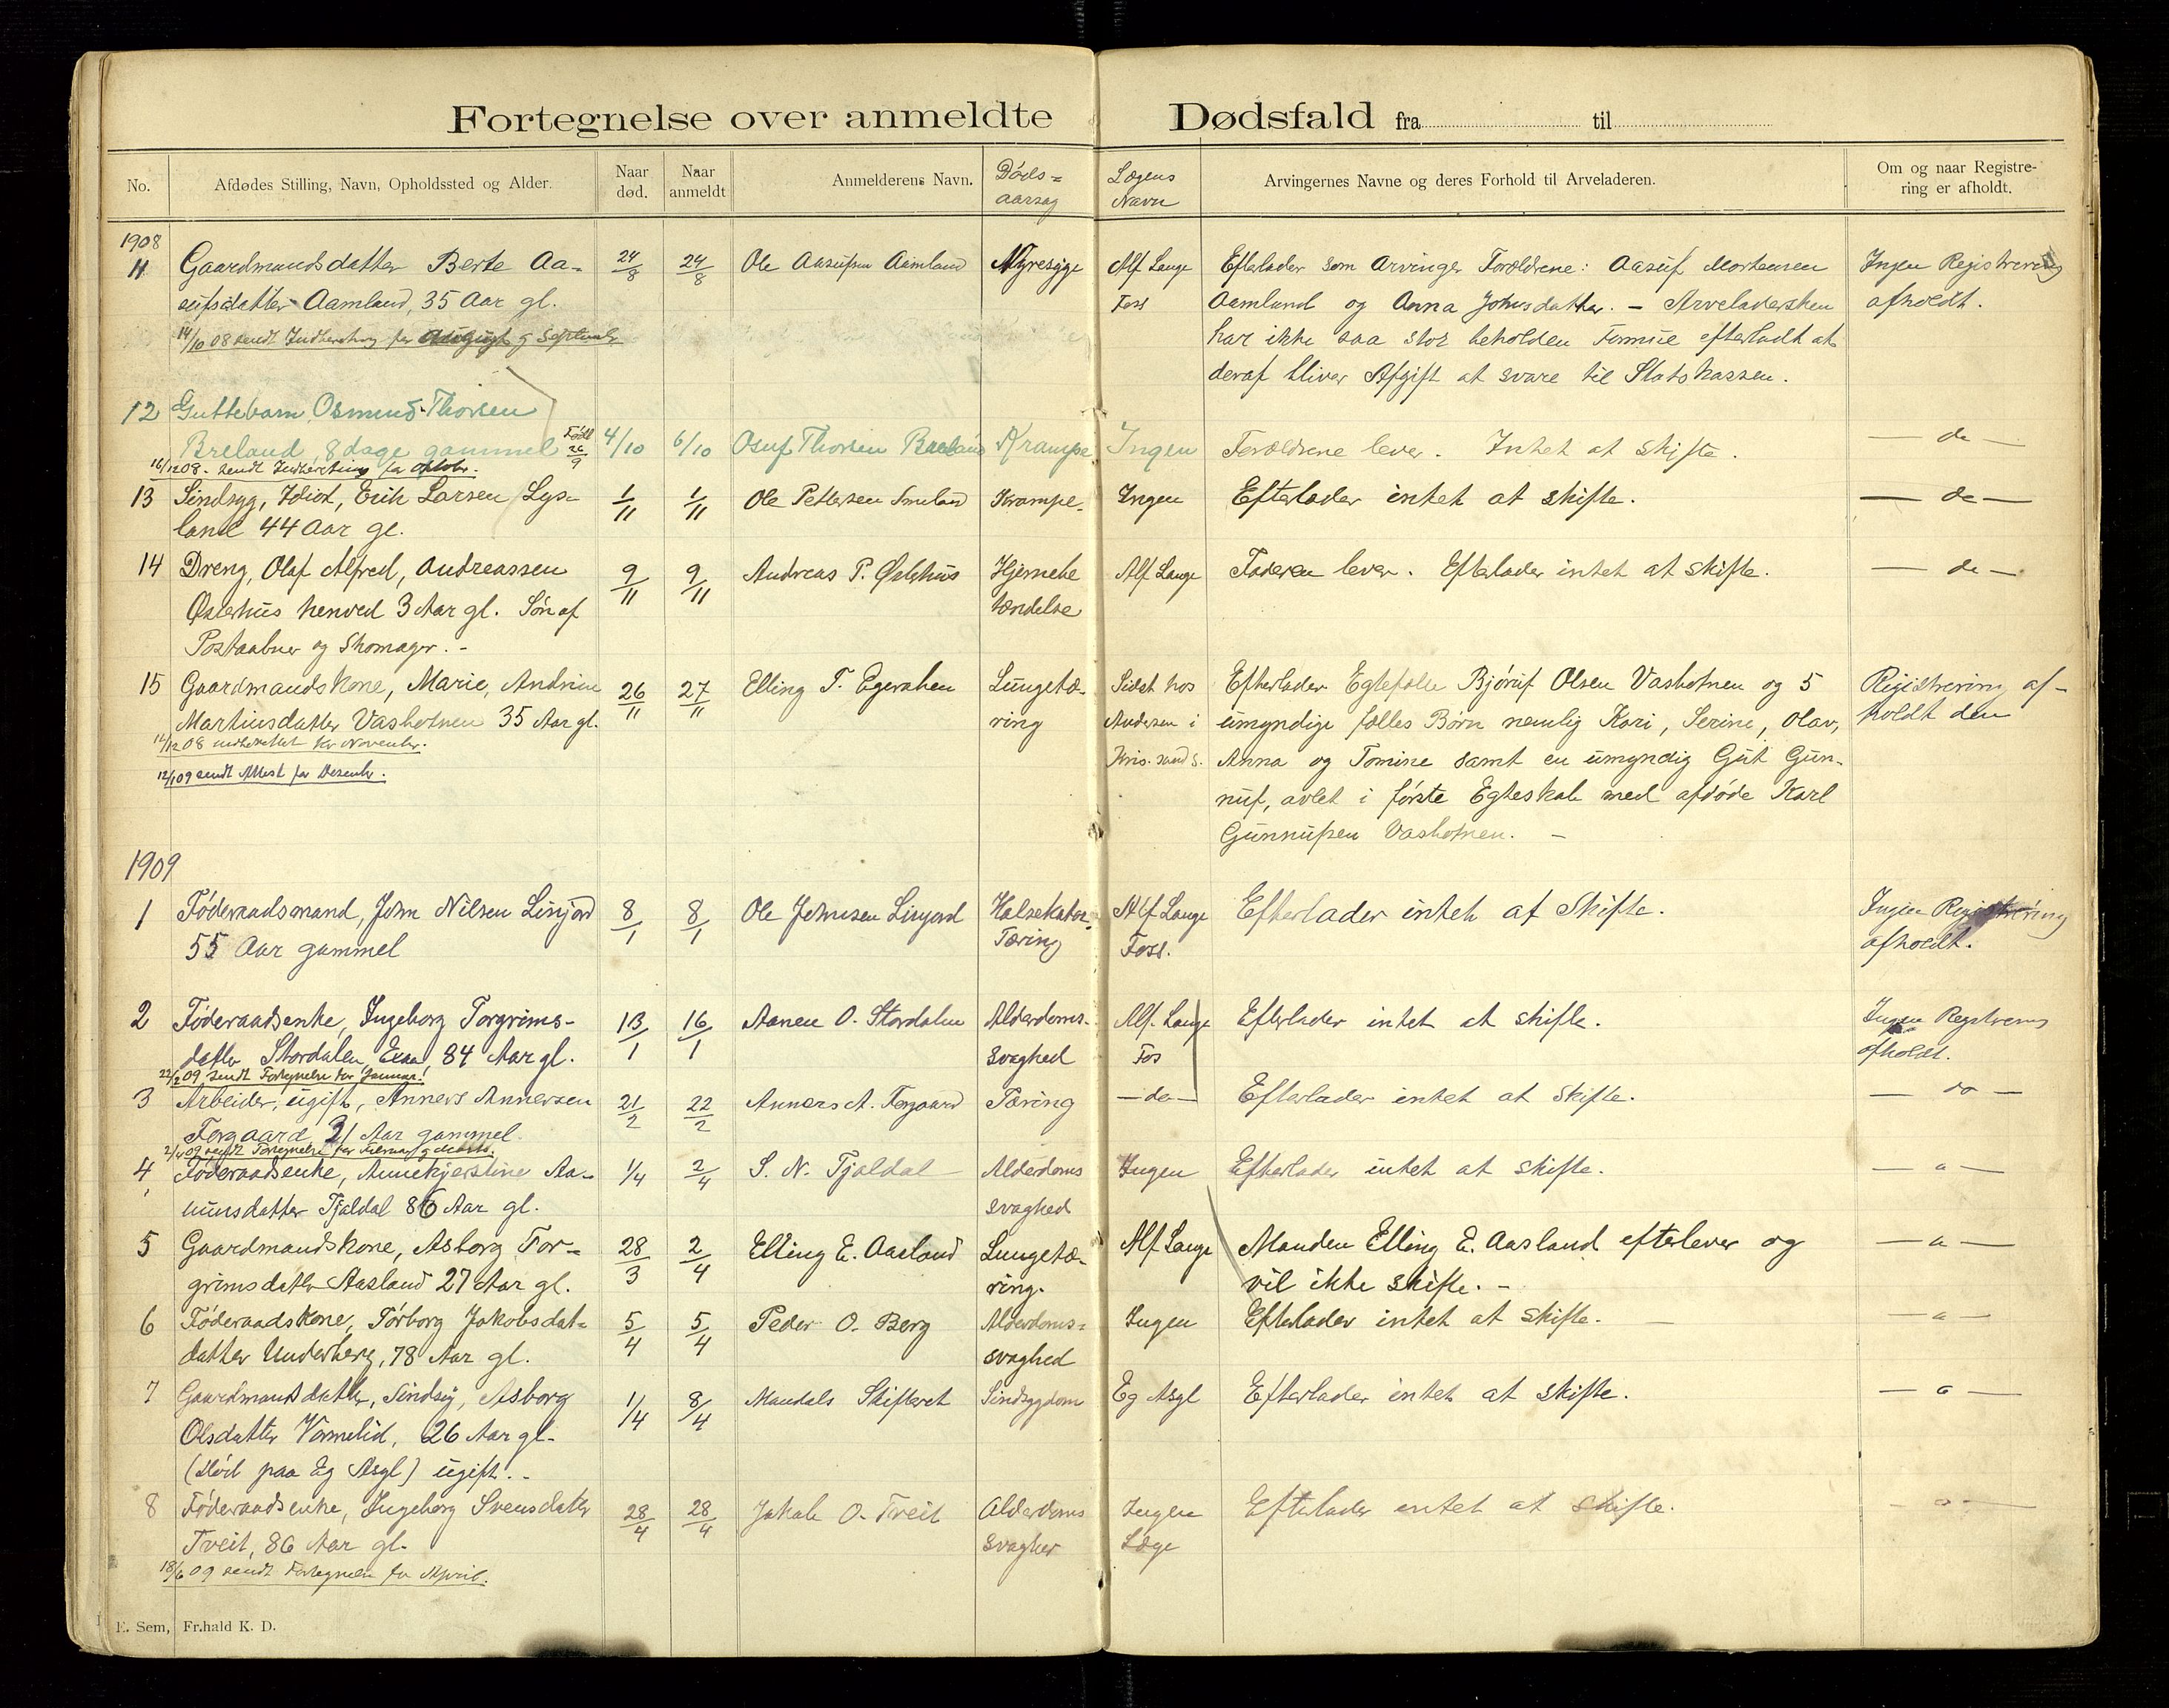 Fortegnelse over anmeldte Dødsfald fra til
No. Afdødes Stilling, Navn, Opholdssted og Alder. Naar død. Naar anmeldt Anmelderens Navn. Døds-aarsag Lægens Navn Arvingernes Navne og deres Forhold til Arveladeren. Om og naar Registre-ring er afholdt.
1908
11 Gaardmandsdatter Berte Aa- 24/8 24/8 Ole Aasufsen Aamland Nyresyge Alf Lange Efterlader som Arvinger Forældrene: Aasuf Mortensen Ingen Registrering
sufsdatter Aamland, 35 Aar gl. Foss Aamland og Anna Johnsdatter. - Arveladersken afholdt.
14/10 08 sendt Indberetng for August og September har ikke saa stor beholden Formue efterladt at
deraf bliver Afgift at svare til Statskassen.
12 Guttebarn Osmund Thorsen
Breland, 8 dage gammel Född 26/9 4/10 6/10 Osuf Thorsen Breland Krampe Ingen Forældrene lever. Intet at skifte. — do —
16/12 08. sendt Indberetning for Oktobr.
13 Sindsyg, Idiot, Erik Larsen Lys- 1/11 1/11 Ole Pettersen Smeland Krampe. Ingen Efterlader intet at skifte. — do —
land 44 Aar gl.
14 Dreng, Olaf Alfred, Andreassen 9/11 9/11 Andreas P. Østerhus Hjernebe Alf Lange Faderen lever. Efterlader intet at skifte. — do —
Østerhus henved 3 Aar gl. Søn af tændelse
Postaabner og Skomager. -
15 Gaardmandskone, Marie, Andrine 26/11 27/11 Elling T. Egerahen Lungetæ- Sidst hos Efterlader Egtefælle Bjørüf Olsen Vasbotnen og 5 Registrering af-
Martinsdatter Vasbotnen 35 Aar gl. ring Andersen i umyndige fælles Børn nemlig Kari, Serine, Olav, holdt den
12/12 08 indberettet for Novembr. Kris.sand S. Anna og Tomine samt en umyndig Gut Gun-
12/1 09 sendt Attest for Desembr. nuf, avlet i første Egteskab med afdøde Karl
Gunnufsen Vasbotnen. -
1909
1 Føderaadsmand, John Nilsen Linjord 8/1 8/1 Ole Johnsen Linjord Halsekatar, Alf Lange Efterlader intet at Skifte. Ingen Registrering
55 Aar gammel Tæring Foss. afholdt.
2 Føderaadsenke, Ingeborg Torgrims- 13/1 16/1 Aanen O. Stordalen Alderdoms- Alf. Lange Efterlader intet at skifte. Ingen Registrering
datter Stordalen, 84 Aar gl. svaghed Fos afholdt.
22/2 09 sendt Fortegnelse for Januar!
3 Arbeider, ugift, Anners Annersen 21/2 22/2 Anners A. Forgaard Tæring — do — Efterlader intet at skifte. — do —
Forgaard, 21 Aar gammel.
2/4 09 sendt Fortegnelse for Februar og Marts.
4 Føderaadsenke, Annekjerstine Aa- 1/4 2/4 S. N. Tjaldal Alderdoms Ingen Efterlader intet at skifte. — " —
nunsdatter Tjaldal 86 Aar gl. svaghed
5 Gaardmandskone, Asborg Tor- 28/3 2/4 Elling E. Aasland Lungetæ- Alf Lange Manden Elling E. Aasland efterlever og — " —
grimsdatter Aasland 27 Aar gl. ring. vil ikke skifte. -
6 Føderaadskone, Tórborg Jakobsdat- 5/4 5/4 Peder O. Berg Alderdoms- Ingen Efterlader intet at skifte. — " —
datter Underberg, 78 Aar gl. svaghed
7 Gaardmandsdatter, Sindsyg, Asborg 1/4 8/4 Mandals Skifteret Sindsygdom Eg Asyl Efterlader intet at skifte. — " —
Olsdatter Vormelid, 26 Aar gl.
(død paa Eg Asyl) ugift. -
8 Føderaadsenke, Ingeborg Svensdatter 28/4 28/4 Jakob O. Tveit Alderdoms Ingen Efterlader intet at skifte. — " —
Tveit, 86 Aar gl. svaghed Læge
18/6 09 sendt Fortegnelse for April.
E. Sem, Fr.hald K. D.